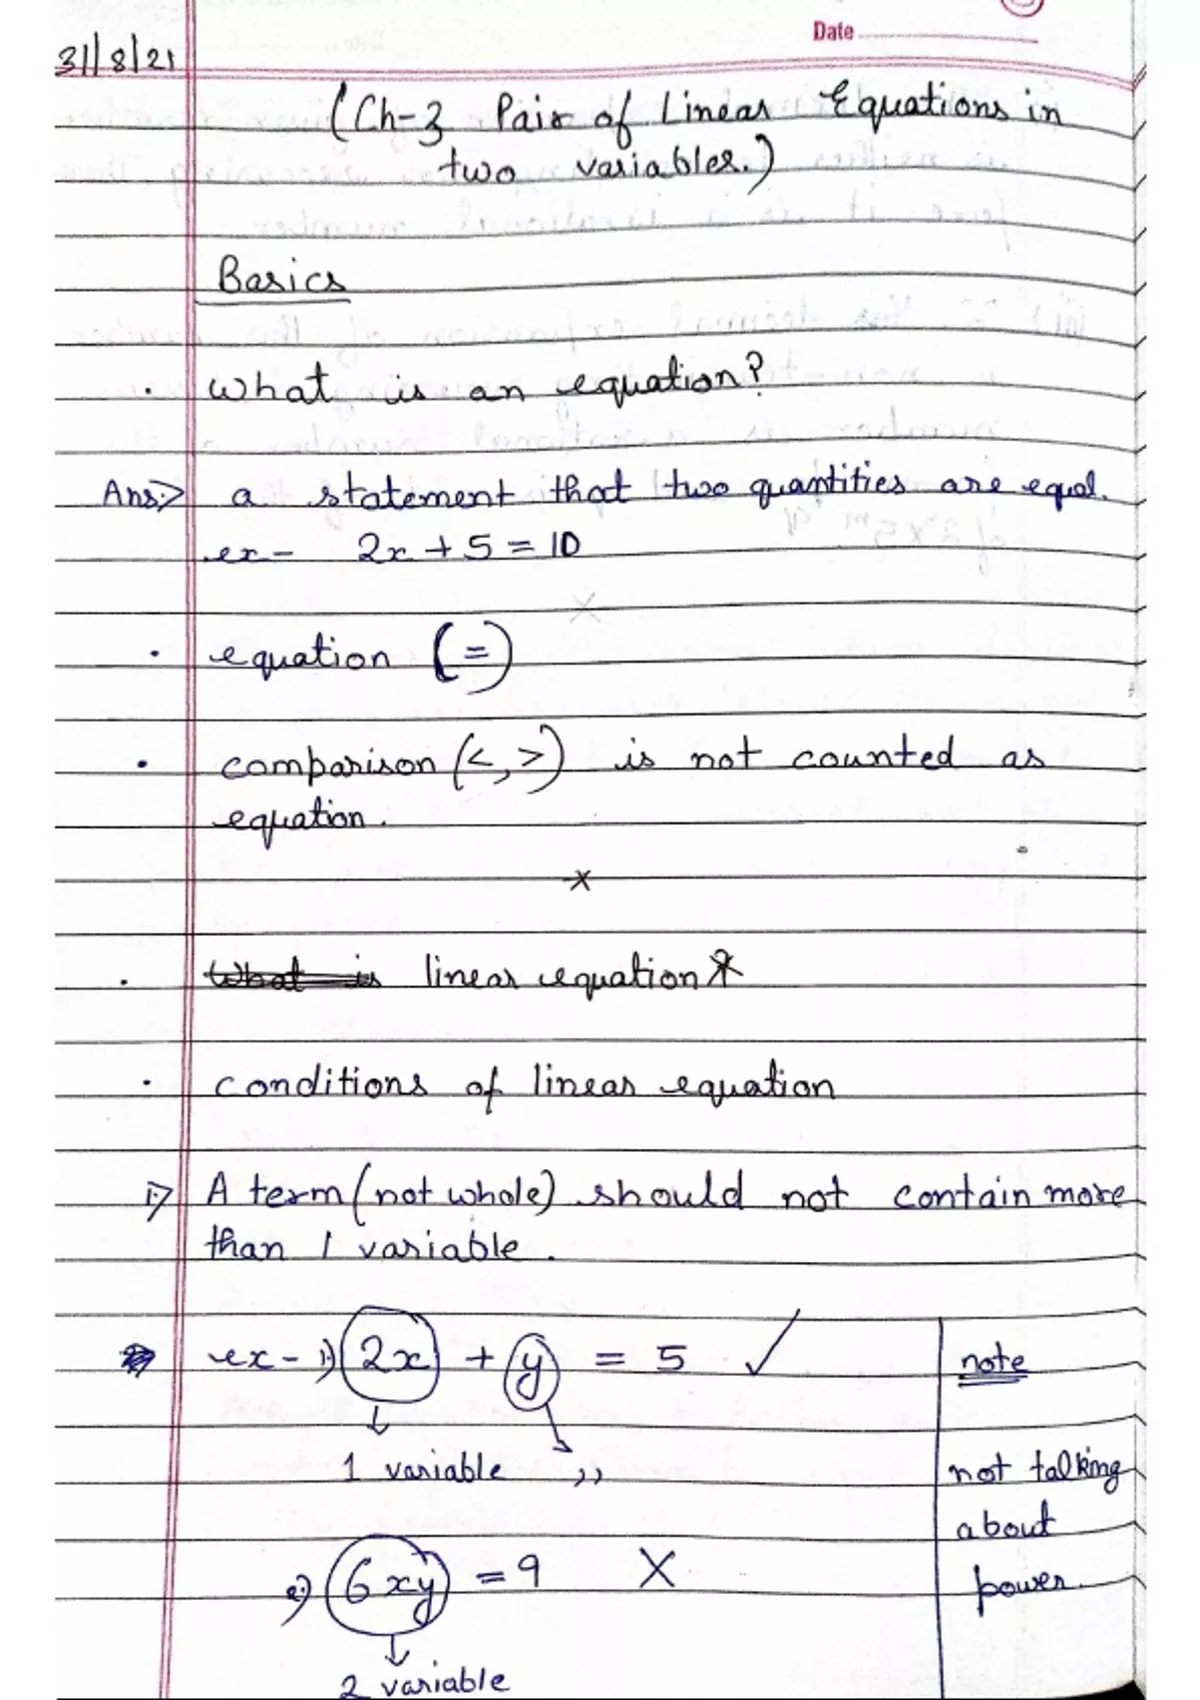 Date
31/8/21
(Ch-3 Pair of Linear Equations in
two variables.)
Basics
· What is an equation?
Ans:> a statement that two quantities are equal.
ex- 2x + 5 = 10
· equation (=)
· comparison (<, >) is not counted as
equation.
x
· What is linear equation
· conditions of linear equation
i> A term (not whole) should not contain more
than 1 variable.
ex- 1) 2x + y = 5 ✓
note
1 variable ,,
not talking
about
2) 6xy = 9 X
power.
2 variable